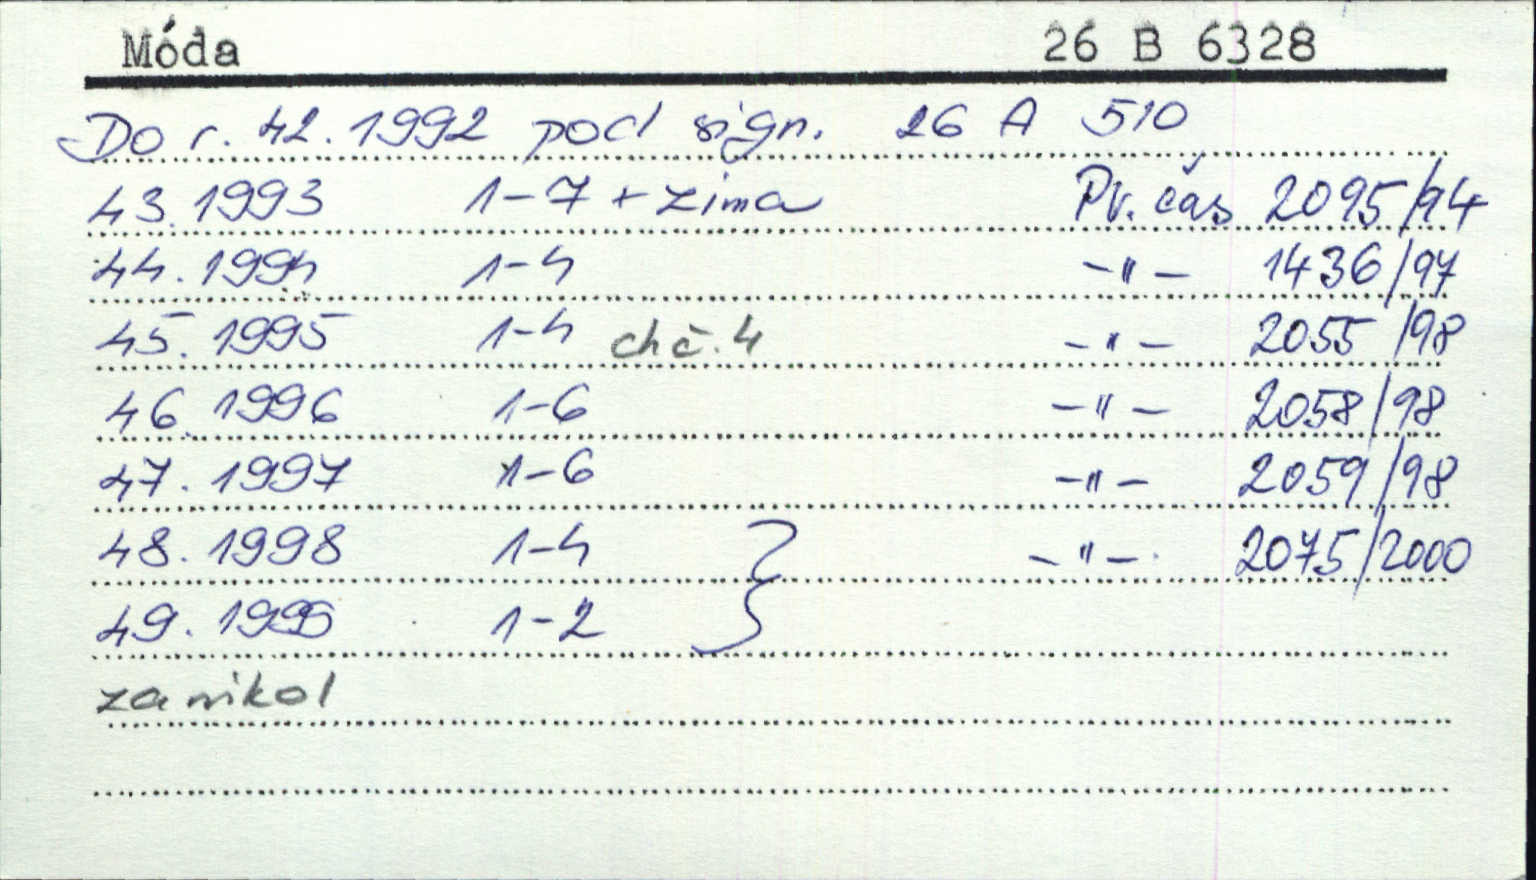 Móda 26 B 6328
Do r. 42. 1992 pod sign. 26 A 510
43. 1993 1-7 + zima Pv. čas 2095/94
44. 1994 1-4 -"- 1436/97
45. 1995 1-4 ch č. 4 -"- 2055/98
46. 1996 1-6 -"- 2058/98
47. 1997 1-6 -"- 2059/98
48. 1998 1-4 } -"- 2075/2000
49. 1999 1-2
zanikol